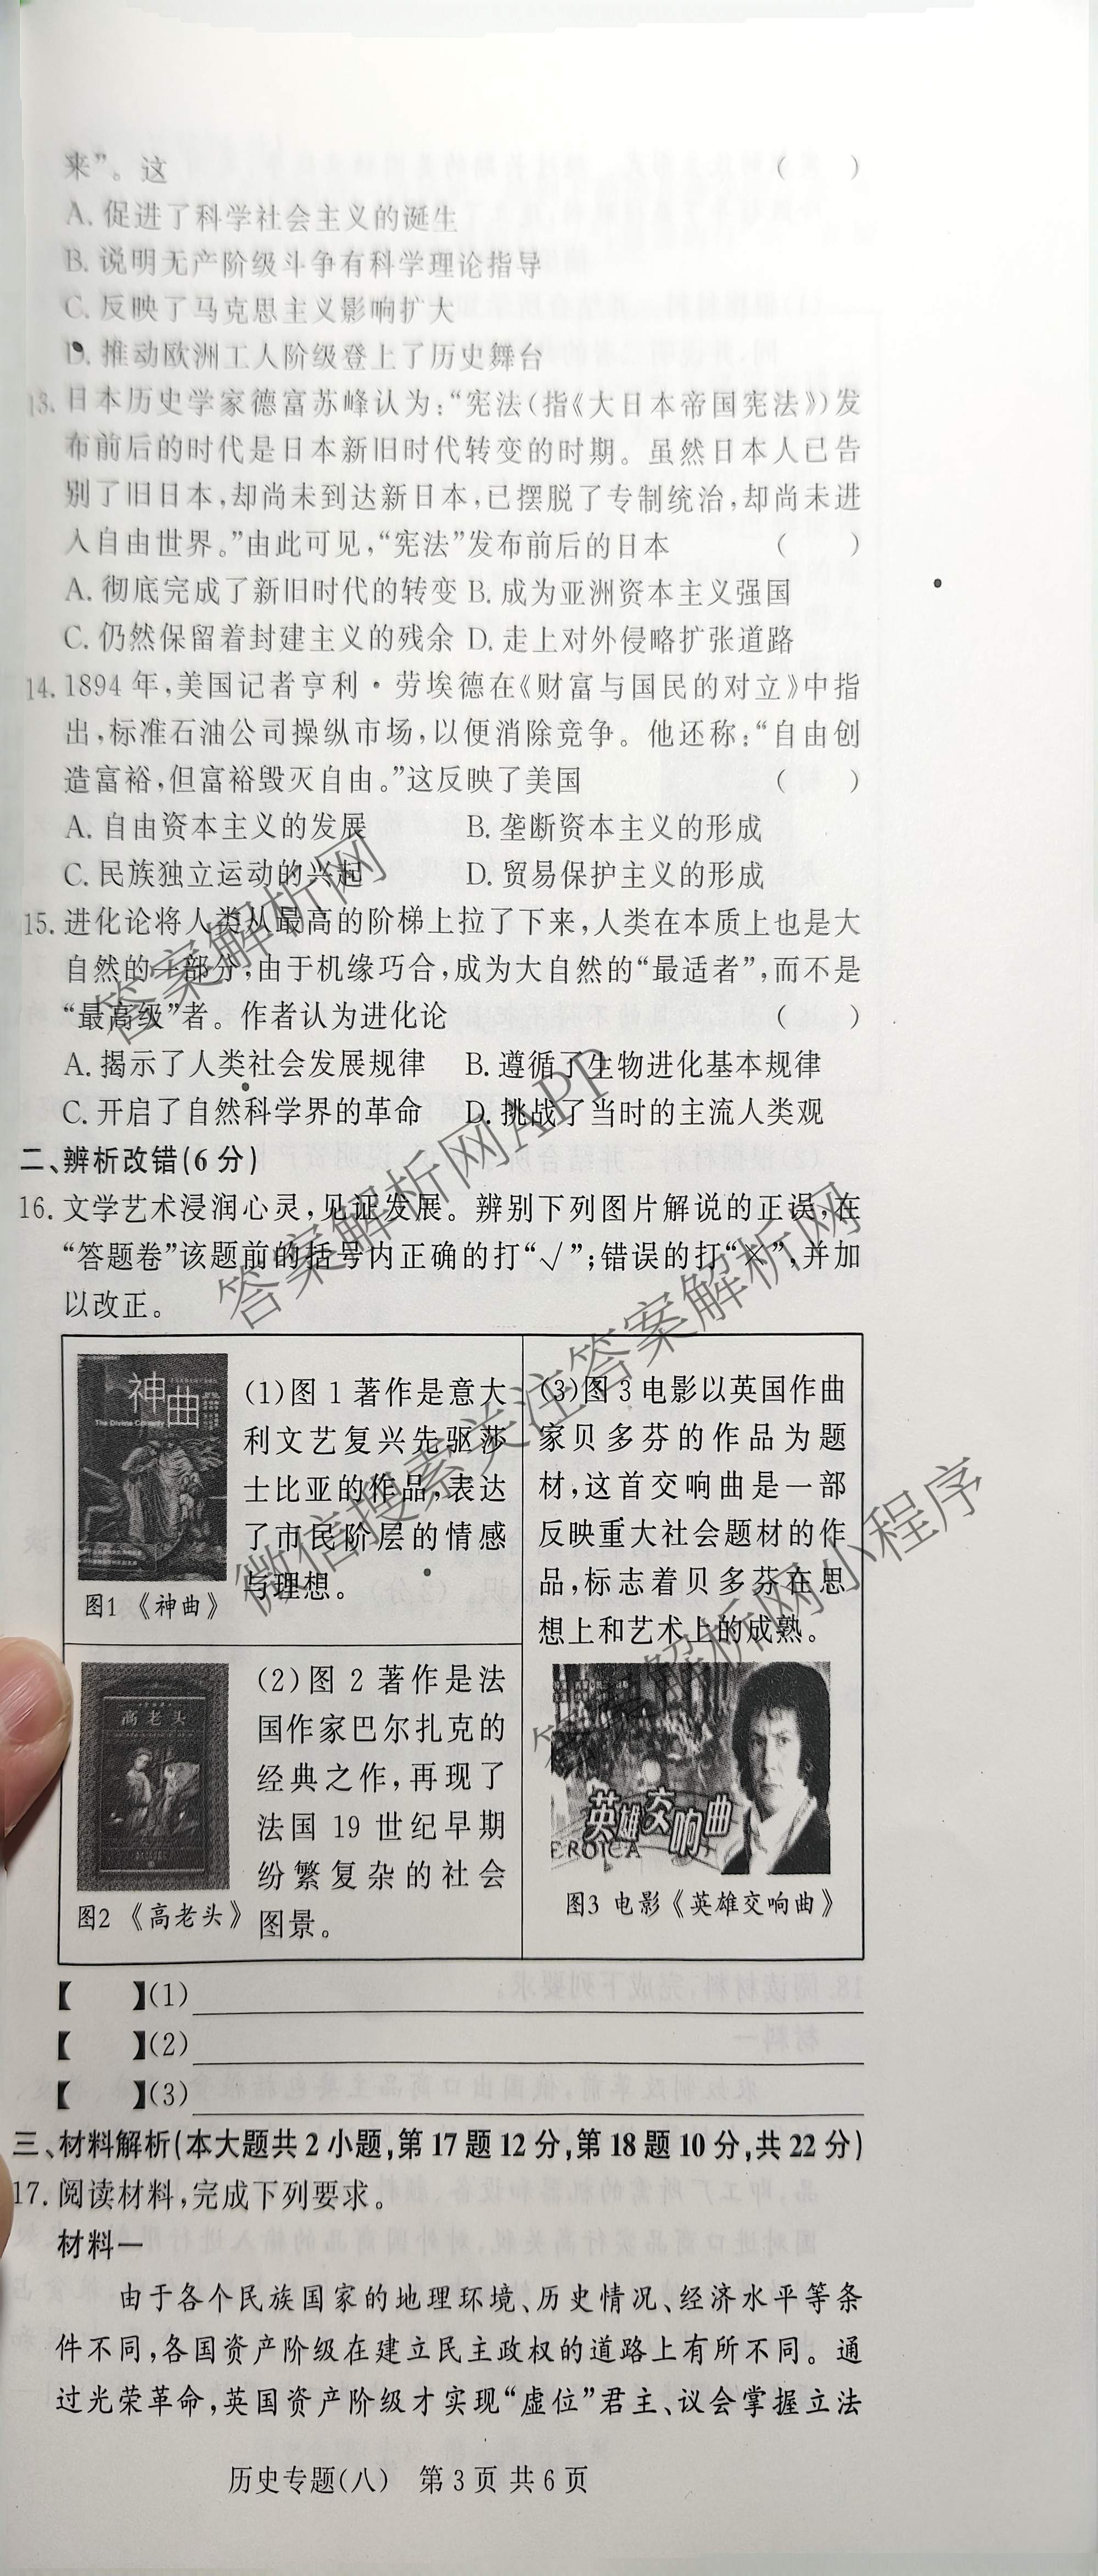 来”。这 ( )
A. 促进了科学社会主义的诞生
B. 说明无产阶级斗争有科学理论指导
C. 反映了马克思主义影响扩大
D. 推动欧洲工人阶级登上了历史舞台
13. 日本历史学家德富苏峰认为:“宪法(指《大日本帝国宪法》)发
布前后的时代是日本新旧时代转变的时期。虽然日本人已告
别了旧日本,却尚未到达新日本,已摆脱了专制统治,却尚未进
入自由世界。”由此可见,“宪法”发布前后的日本 ( )
A. 彻底完成了新旧时代的转变 B. 成为亚洲资本主义强国
C. 仍然保留着封建主义的残余 D. 走上对外侵略扩张道路
14. 1894 年,美国记者亨利·劳埃德在《财富与国民的对立》中指
出,标准石油公司操纵市场,以便消除竞争。他还称:“自由创
造富裕,但富裕毁灭自由。”这反映了美国 ( )
A. 自由资本主义的发展 B. 垄断资本主义的形成
C. 民族独立运动的兴起 D. 贸易保护主义的形成
15. 进化论将人类从最高的阶梯上拉了下来,人类在本质上也是大
自然的一部分;由于机缘巧合,成为大自然的“最适者”,而不是
“最高级”者。作者认为进化论 ( )
A. 揭示了人类社会发展规律 B. 遵循了生物进化基本规律
C. 开启了自然科学界的革命 D. 挑战了当时的主流人类观
二、辨析改错(6 分)
16. 文学艺术浸润心灵,见证发展。辨别下列图片解说的正误,在
“答题卷”该题前的括号内正确的打“√”;错误的打“×”,并加
以改正。
神曲
The Divine Comedy
图1 《神曲》
(1)图 1 著作是意大
利文艺复兴先驱莎
士比亚的作品,表达
了市民阶层的情感
与理想。
高老头
图2 《高老头》
(2)图 2 著作是法
国作家巴尔扎克的
经典之作,再现了
法国 19 世纪早期
纷繁复杂的社会
图景。
(3)图 3 电影以英国作曲
家贝多芬的作品为题
材,这首交响曲是一部
反映重大社会题材的作
品,标志着贝多芬在思
想上和艺术上的成熟。
英雄交响曲
EROICA
图3 电影《英雄交响曲》
【 】(1)
【 】(2)
【 】(3)
三、材料解析(本大题共 2 小题,第 17 题 12 分,第 18 题 10 分,共 22 分)
17. 阅读材料,完成下列要求。
材料一
由于各个民族国家的地理环境、历史情况、经济水平等条
件不同,各国资产阶级在建立民主政权的道路上有所不同。通
过光荣革命,英国资产阶级才实现“虚位”君主、议会掌握立法
历史专题(八) 第 3 页 共 6 页
答案解析网
答案解析网APP
微信搜索关注答案解析网
答案解析网小程序